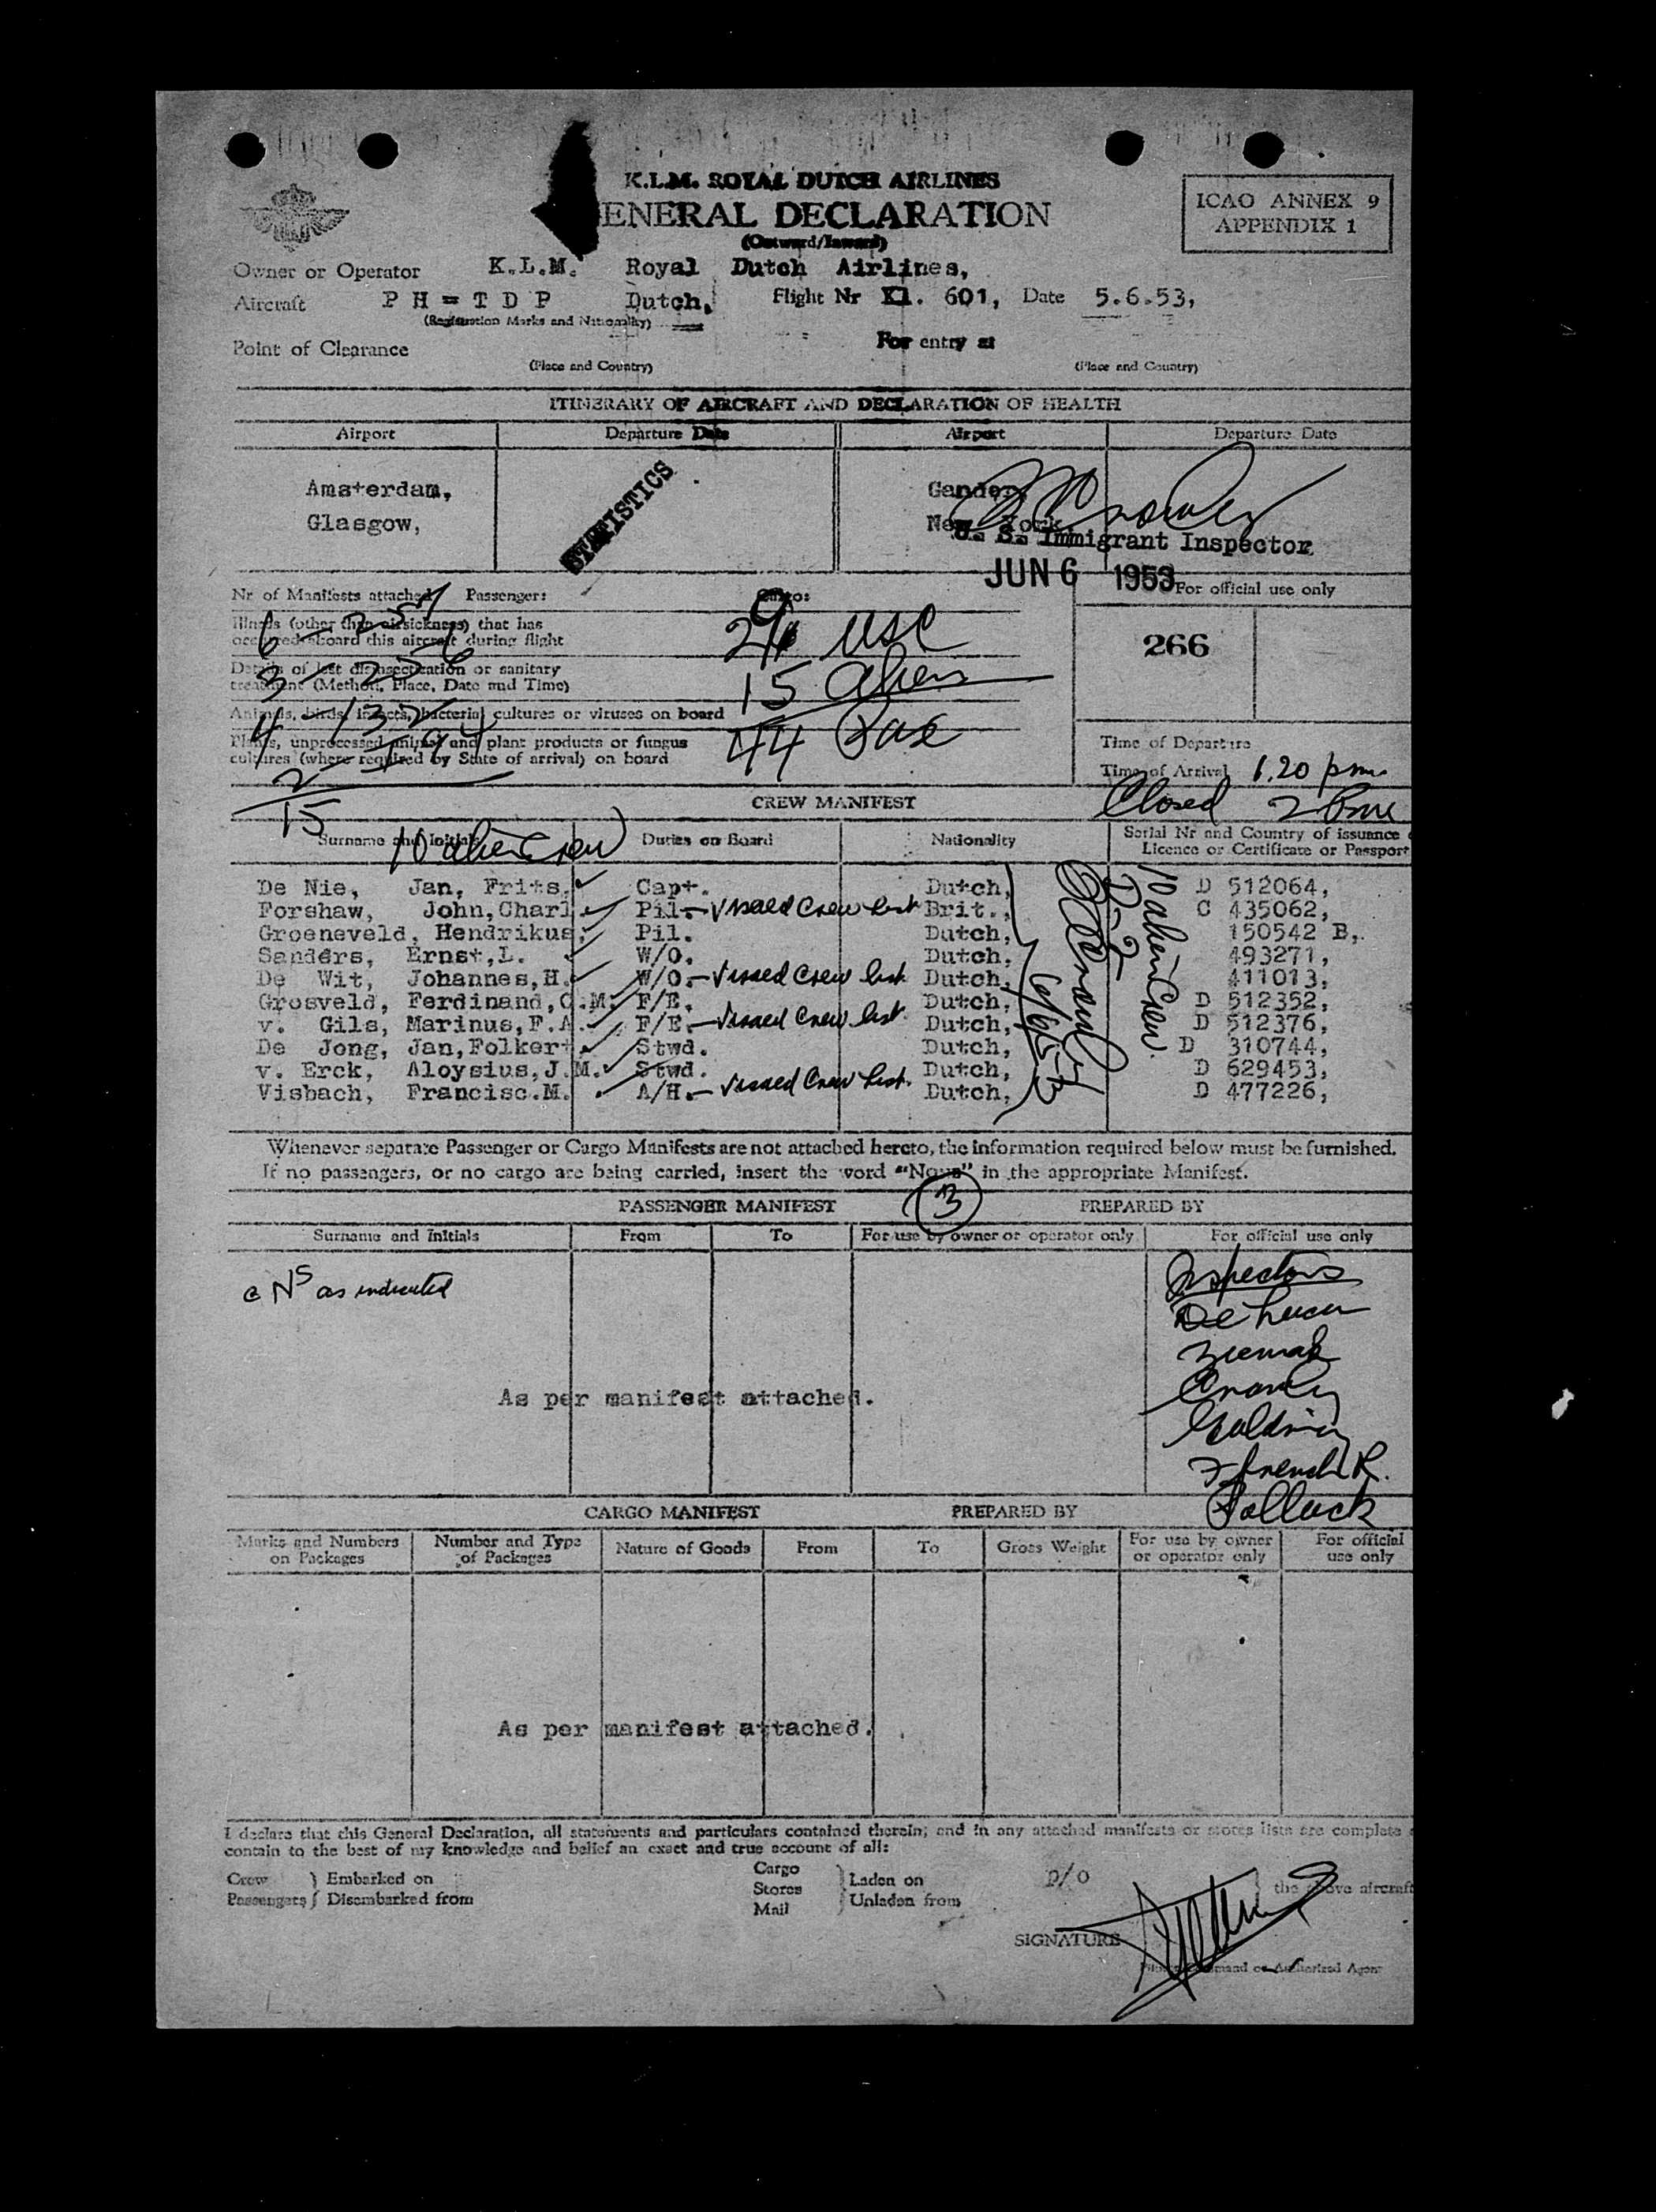 K.L.M. ROYAL DUTCH AIRLINES
ENERAL DECLARATION
(Outward/Inward)
ICAO ANNEX 9
APPENDIX 1
Owner or Operator K.L.M. Royal Dutch Airlines,
Aircraft PH=TDP Dutch, Flight Nr Kl. 601, Date 5.6.53,
(Registration Marks and Nationality)
Point of Clearance For entry at
(Place and Country) (Place and Country)
ITINERARY OF AIRCRAFT AND DECLARATION OF HEALTH
Airport Departure Date Airport Departure Date
Amsterdam, Gander,
Glasgow, New York
STATISTICS
U. S. Immigrant Inspector
JUN 6 1953
For official use only
Nr of Manifests attached Passenger: Cargo:
Illness (other than airsickness) that has
occurred aboard this aircraft during flight
29 USC
266
Details of last disinsectization or sanitary
treatment (Method, Place, Date and Time)
15 aliens
Animals, birds, insects, bacterial cultures or viruses on board
Plants, unprocessed animal and plant products or fungus
cultures (where required by State of arrival) on board
44 Pax
Time of Departure
Time of Arrival 1.20 pm.
Closed 2 Pm
15
CREW MANIFEST
10 alien Crew
Surname and Initials Duties on Board Nationality Serial Nr and Country of issuance
Licence or Certificate or Passport
De Nie, Jan, Frits. Capt. Dutch, D 512064,
Forshaw, John, Charl Pil. - Visaed Crew list Brit., C 435062,
Groeneveld, Hendrikus, Pil. Dutch, 150542 B,
Sanders, Ernst, L. W/O. Dutch, 493271,
De Wit, Johannes, H. W/O. - Visaed Crew list Dutch, 411013,
Grosveld, Ferdinand, C.M. F/E. Dutch, D 512352,
v. Gils, Marinus, F.A. F/E. - Visaed Crew list Dutch, D 512376,
De Jong, Jan, Folkert Stwd. Dutch, D 310744,
v. Erck, Aloysius, J.M. Stwd. Dutch, D 629453,
Visbach, Francisc.M. A/H. - Visaed Crew list. Dutch, D 477226,
6/6/53
10 alien Crew.
Whenever separate Passenger or Cargo Manifests are not attached hereto, the information required below must be furnished.
If no passengers, or no cargo are being carried, insert the word "None" in the appropriate Manifest.
3
PASSENGER MANIFEST PREPARED BY
Surname and Initials From To For use by owner or operator only For official use only
as indicated
Inspectors
As per manifest attached.
French R.
Pollack
CARGO MANIFEST PREPARED BY
Marks and Numbers on Packages Number and Type of Packages Nature of Goods From To Gross Weight For use by owner or operator only For official use only
As per manifest attached.
I declare that this General Declaration, all statements and particulars contained therein; and in any attached manifests or stores lists are complete
contain to the best of my knowledge and belief an exact and true account of all:
Crew } Embarked on Cargo } Laden on
Passengers } Disembarked from Stores Unladen from the above aircraft
Mail
P/O
SIGNATURE
Pilot in Command or Authorized Agent